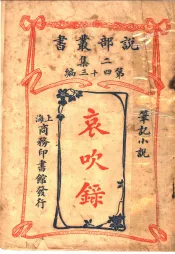 說部叢書
二集
第四十三編
筆記小說
哀吹錄
上海
商務印書館發行